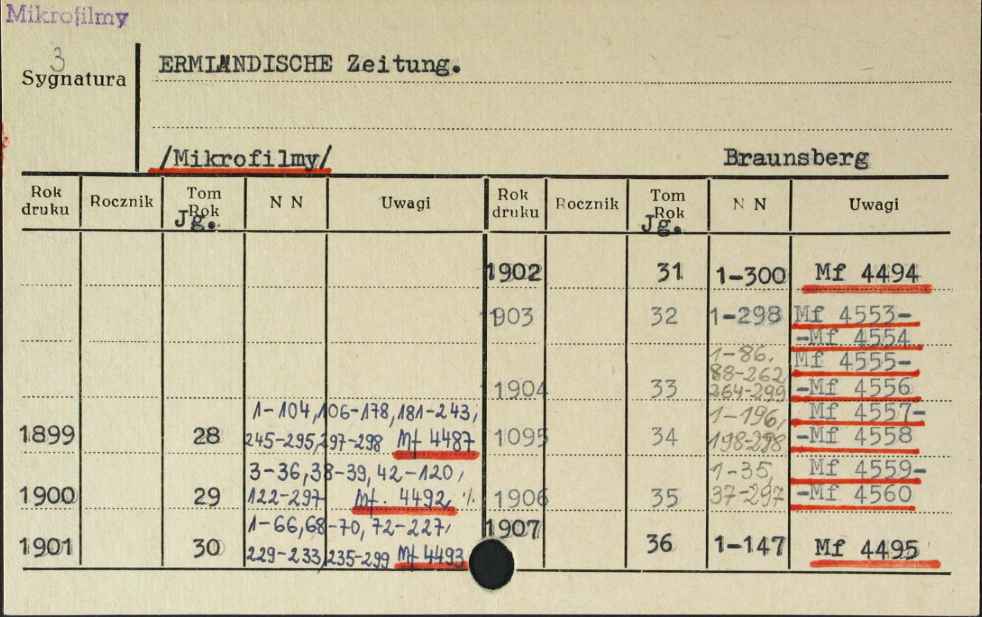 Mikrofilmy
3
Sygnatura
ERMLÄNDISCHE Zeitung.
/Mikrofilmy/ Braunsberg
Rok druku Rocznik Tom Rok Jg. N N Uwagi Rok druku Rocznik Tom Rok Jg. N N Uwagi
1902 31 1-300 Mf 4494
1903 32 1-298 Mf 4553-
-Mf 4554
1-86, Mf 4555-
88-262,
1904 33 264-299 -Mf 4556
1-104,106-178,181-243, 1-196, Mf 4557-
1899 28 245-295,297-298 Mf 4487 1095 34 198-298 -Mf 4558
3-36,38-39,42-120, 1-35, Mf 4559-
1900 29 122-297 Mf. 4492 ./. 1906 35 37-297 -Mf 4560
1-66,68-70,72-227, 1907
1901 30 229-233,235-299 Mf 4493 36 1-147 Mf 4495